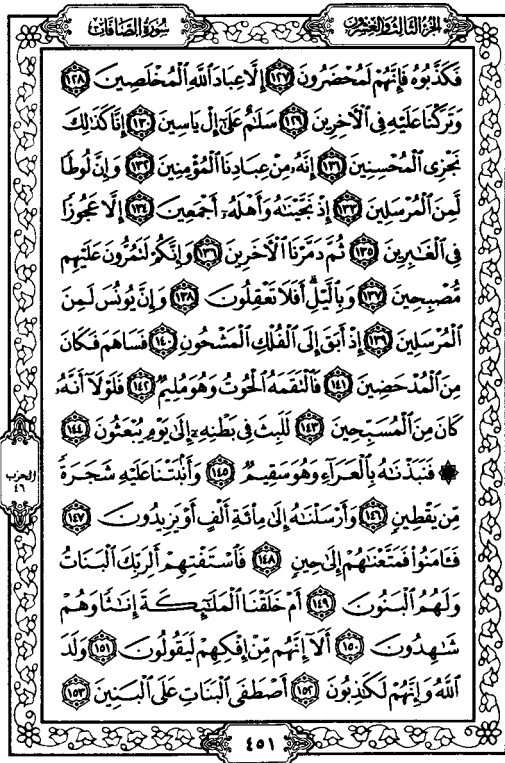 الجزء الثالث والعشرون
سورة الصافات
فَكَذَّبُوهُ فَإِنَّهُمْ لَمُحْضَرُونَ ﴿١٢٧﴾ إِلَّا عِبَادَ اللَّهِ الْمُخْلَصِينَ ﴿١٢٨﴾
وَتَرَكْنَا عَلَيْهِ فِي الْآخِرِينَ ﴿١٢٩﴾ سَلَامٌ عَلَىٰ إِلْ يَاسِينَ ﴿١٣٠﴾ إِنَّا كَذَٰلِكَ
نَجْزِي الْمُحْسِنِينَ ﴿١٣١﴾ إِنَّهُ مِنْ عِبَادِنَا الْمُؤْمِنِينَ ﴿١٣٢﴾ وَإِنَّ لُوطًا
لَّمِنَ الْمُرْسَلِينَ ﴿١٣٣﴾ إِذْ نَجَّيْنَاهُ وَأَهْلَهُ أَجْمَعِينَ ﴿١٣٤﴾ إِلَّا عَجُوزًا
فِي الْغَابِرِينَ ﴿١٣٥﴾ ثُمَّ دَمَّرْنَا الْآخَرِينَ ﴿١٣٦﴾ وَإِنَّكُمْ لَتَمُرُّونَ عَلَيْهِم
مُّصْبِحِينَ ﴿١٣٧﴾ وَبِاللَّيْلِ ۗ أَفَلَا تَعْقِلُونَ ﴿١٣٨﴾ وَإِنَّ يُونُسَ لَمِنَ
الْمُرْسَلِينَ ﴿١٣٩﴾ إِذْ أَبَقَ إِلَى الْفُلْكِ الْمَشْحُونِ ﴿١٤٠﴾ فَسَاهَمَ فَكَانَ
مِنَ الْمُدْحَضِينَ ﴿١٤١﴾ فَالْتَقَمَهُ الْحُوتُ وَهُوَ مُلِيمٌ ﴿١٤٢﴾ فَلَوْلَا أَنَّهُ
كَانَ مِنَ الْمُسَبِّحِينَ ﴿١٤٣﴾ لَلَبِثَ فِي بَطْنِهِ إِلَىٰ يَوْمِ يُبْعَثُونَ ﴿١٤٤﴾
۞ فَنَبَذْنَاهُ بِالْعَرَاءِ وَهُوَ سَقِيمٌ ﴿١٤٥﴾ وَأَنبَتْنَا عَلَيْهِ شَجَرَةً
مِّن يَقْطِينٍ ﴿١٤٦﴾ وَأَرْسَلْنَاهُ إِلَىٰ مِائَةِ أَلْفٍ أَوْ يَزِيدُونَ ﴿١٤٧﴾
فَآمَنُوا فَمَتَّعْنَاهُمْ إِلَىٰ حِينٍ ﴿١٤٨﴾ فَاسْتَفْتِهِمْ أَلِرَبِّكَ الْبَنَاتُ
وَلَهُمُ الْبَنُونَ ﴿١٤٩﴾ أَمْ خَلَقْنَا الْمَلَائِكَةَ إِنَاثًا وَهُمْ
شَاهِدُونَ ﴿١٥٠﴾ أَلَا إِنَّهُم مِّنْ إِفْكِهِمْ لَيَقُولُونَ ﴿١٥١﴾ وَلَدَ
اللَّهُ وَإِنَّهُمْ لَكَاذِبُونَ ﴿١٥٢﴾ أَصْطَفَى الْبَنَاتِ عَلَى الْبَنِينَ ﴿١٥٣﴾
الحزب
٤٦
٤٥١